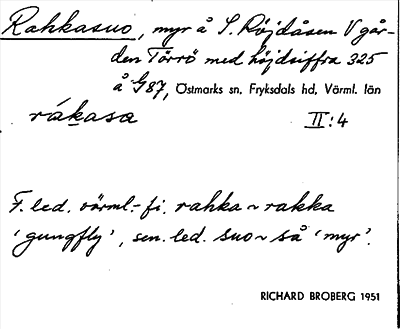 Rahkasuo, myr å S. Röjdåsen V går-
den Törrö med höjdsiffra 325
å G87, Östmarks sn. Fryksdals hd. Värml. län
rákasa II:4
F. led. värml.-fi. rahka ~ rakka
'gungfly', sen. led. suo ~ så 'myr'.
RICHARD BROBERG 1951